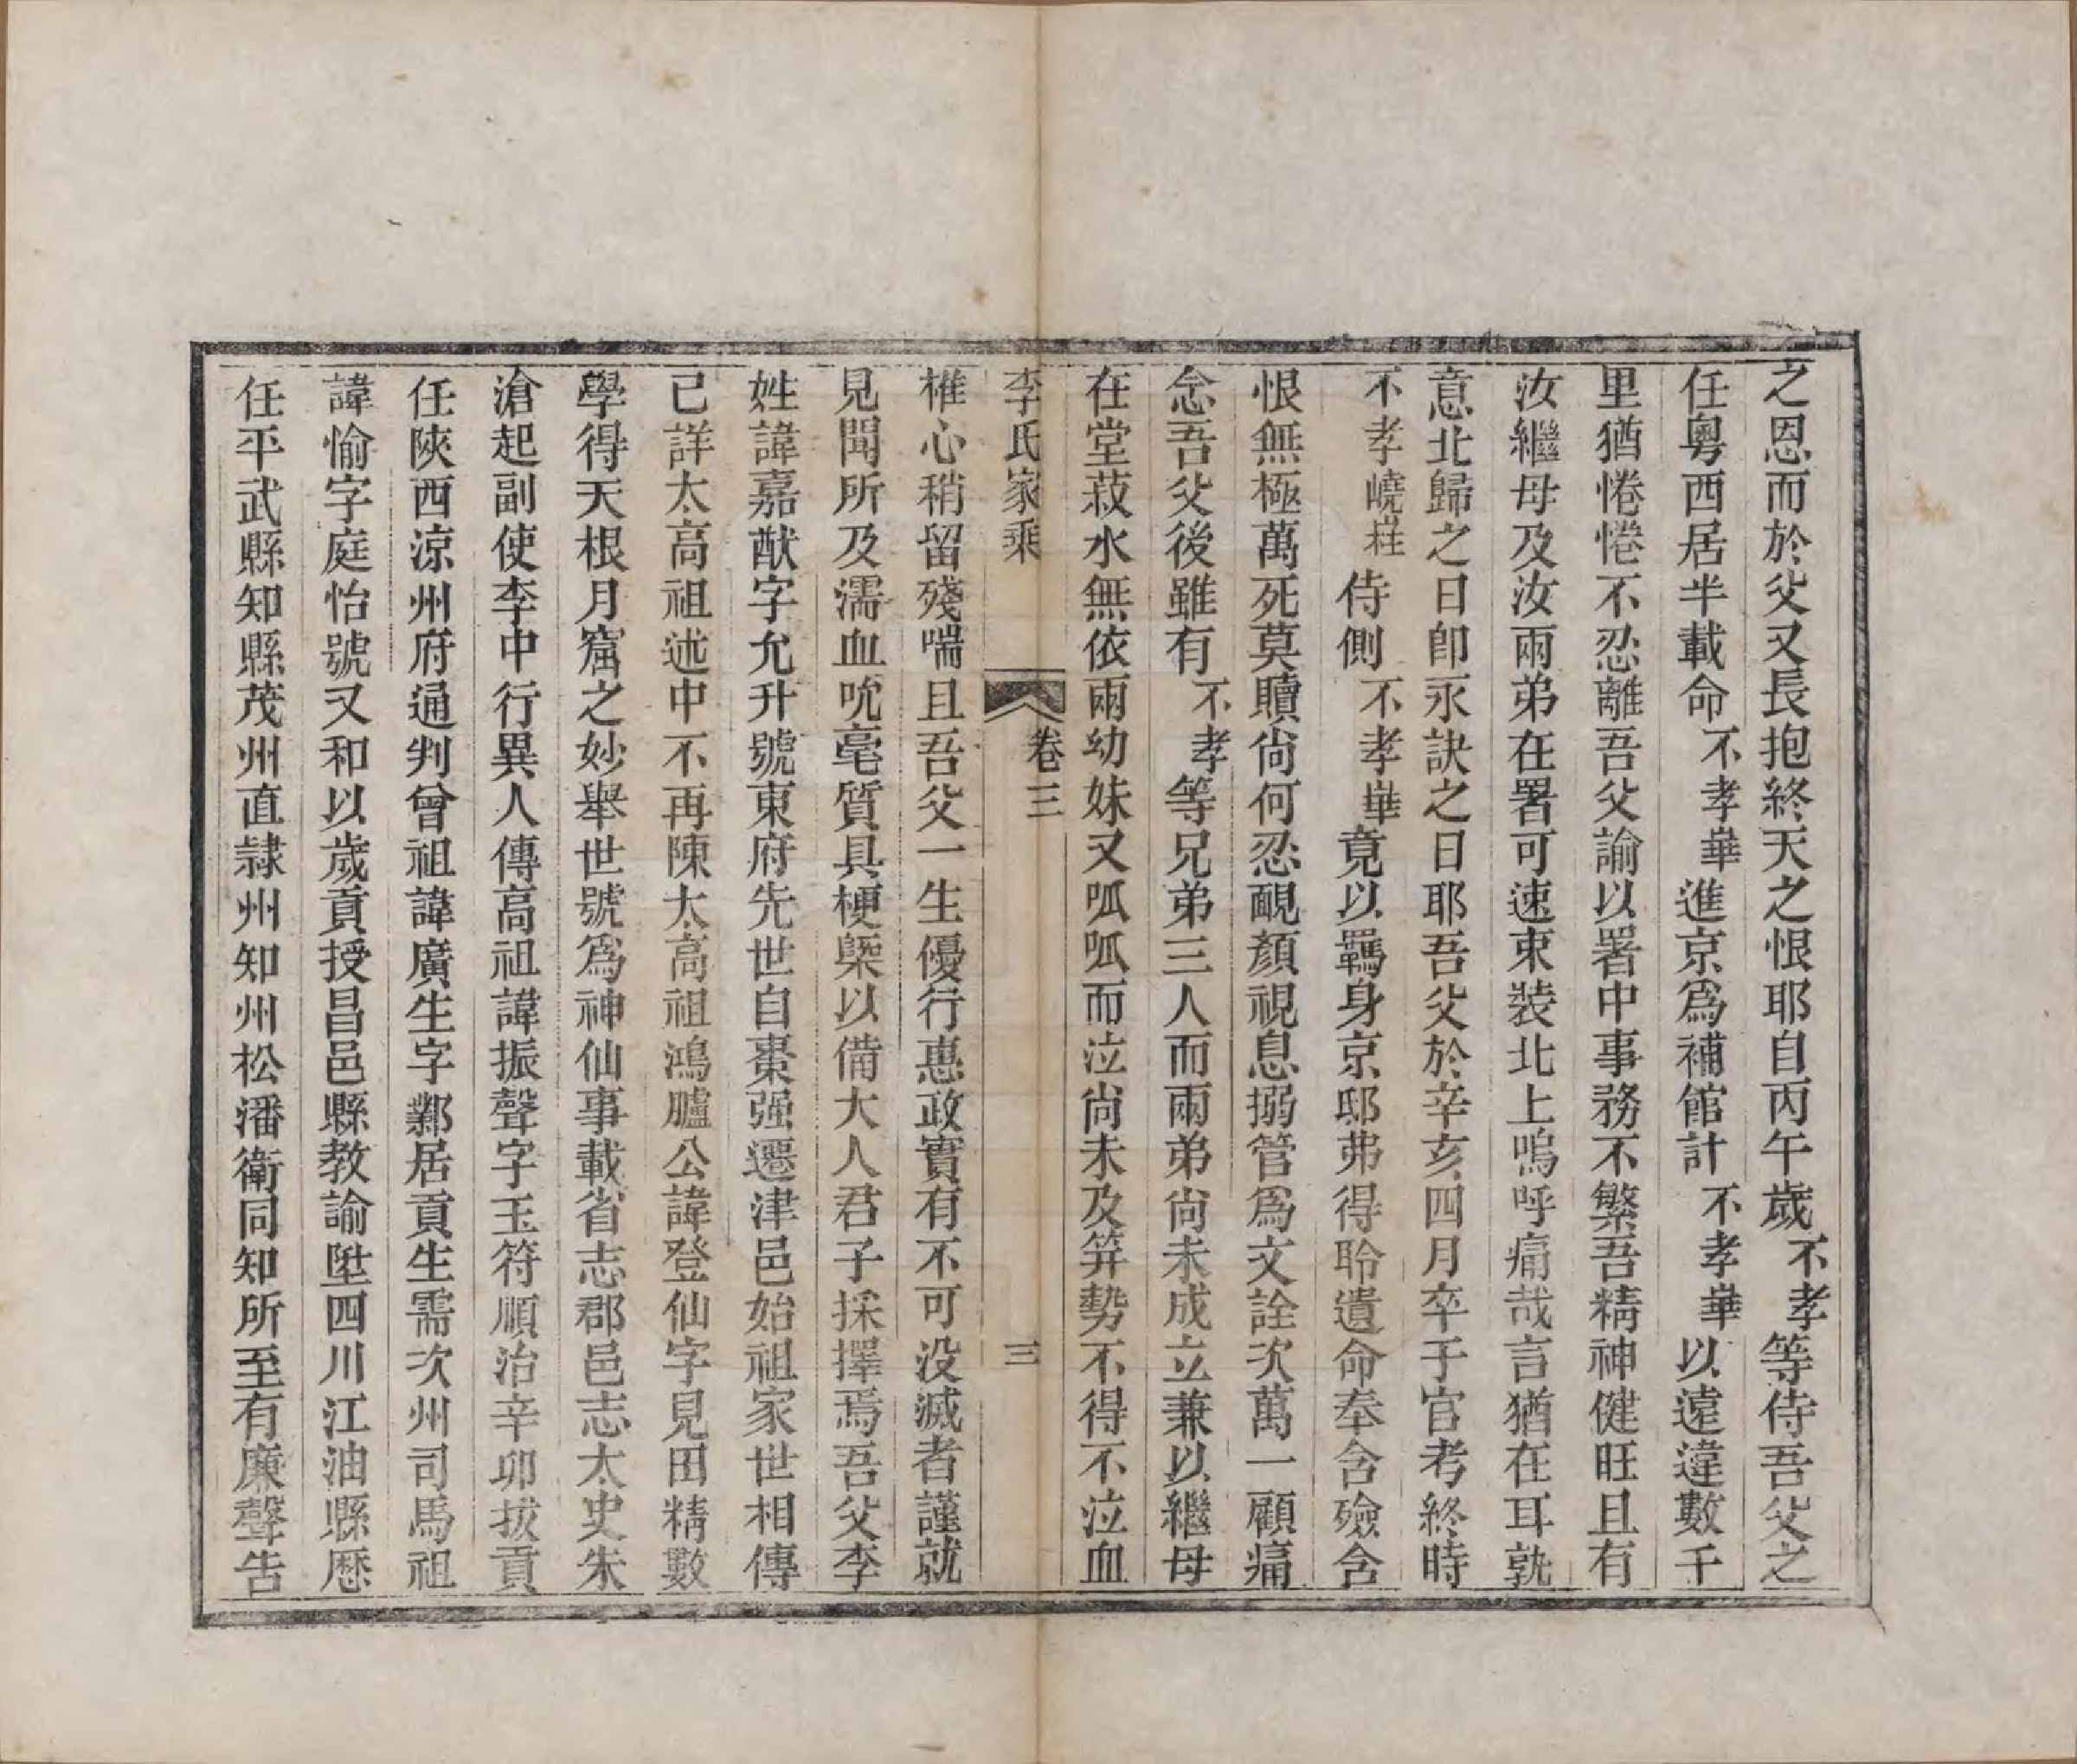 之恩而於父又長抱終天之恨耶自丙午歲不孝等侍吾父之
任粵西居半載命不孝崋進京爲補館計不孝崋以遠違數千
里猶惓惓不忍離吾父諭以署中事務不繁吾精神健旺且有
汝繼母及汝兩弟在署可速束裝北上嗚呼痛哉言猶在耳孰
意北歸之日卽永訣之日耶吾父於辛亥四月卒于官考終時
不孝嶢㟫侍側不孝崋竟以羈身京邸弗得聆遺命奉含殮含
恨無極萬死莫贖尙何忍靦顏視息搦管爲文詮次萬一顧痛
念吾父後雖有不孝等兄弟三人而兩弟尙未成立兼以繼母
在堂菽水無依兩幼妹又呱呱而泣尙未及笄勢不得不泣血
李氏家乘 卷三 三
椎心稍留殘喘且吾父一生優行惠政實有不可没滅者謹就
見聞所及濡血吮毫質具梗槩以備大人君子採擇焉吾父李
姓諱嘉猷字允升號東府先世自棗强遷津邑始祖家世相傳
已詳太高祖述中不再陳太高祖鴻臚公諱登仙字見田精數
學得天根月窟之妙舉世號爲神仙事載省志郡邑志太史朱
滄起副使李中行異人傳高祖諱振聲字玉符順治辛卯拔貢
任陝西涼州府通判曾祖諱廣生字鄴居貢生需次州司馬祖
諱愉字庭怡號又和以歲貢授昌邑縣教諭陞四川江油縣歷
任平武縣知縣茂州直隸州知州松潘衛同知所至有廉聲告